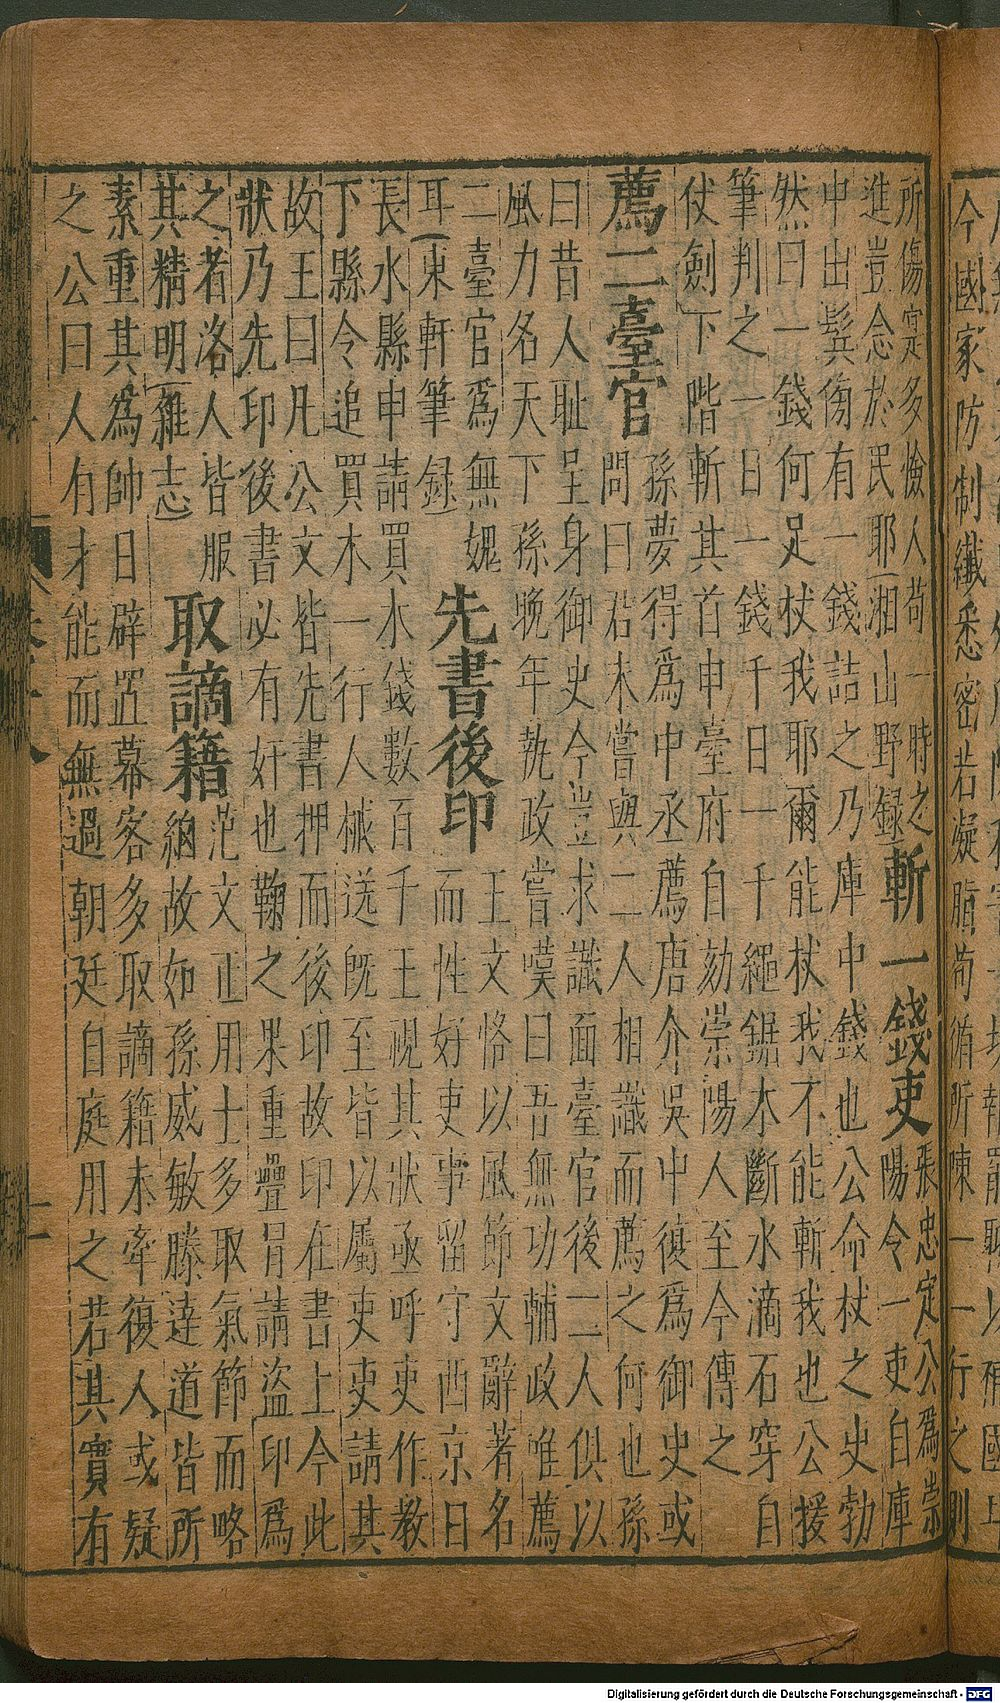 今國家防制纖悉密若凝脂苟循所陳一一行之則
所傷寔多憸人苟一時之
進豈念於民耶(湘山野録
斬一錢吏
張忠定公爲崇
陽令一吏自庫
中出鬂傍有一錢詰之乃庫中錢也公命杖之史勃
然曰一錢何足杖我耶爾能杖我不能斬我也公援
筆判之一日一錢千日一千繩鋸木斷水滴石穿自
仗劍下階斬其首申臺府自劾崇陽人至今傳之
薦二臺官
孫夢得爲中丞薦唐介吳中復爲御史或
問曰若未嘗與二人相識而薦之何也孫
曰昔人耻呈身御史今豈求識面臺官後二人俱以
風力名天下孫晚年執政嘗嘆曰吾無功輔政唯薦
二臺官爲無媿
耳(東軒筆録)
先書後印
王文恪以風節文辭著名
而性好吏事留守西京日
長水縣申請買木錢數百千王視其狀亟呼吏作教
下縣令追買木一行人械送既至皆以屬吏吏請其
故王曰凡公文皆先書押而後印故印在書上今此
狀乃先印後書必有奸也鞠之果重疊冐請盜印爲
之者洛人皆服
其精明(雜志)
取謫籍
范文正用士多取氣節而略
細故如孫威敏滕達道皆所
素重其爲帥日辟置幕客多取謫籍未牽復人或疑
之公曰人有才能而無過朝廷自庭用之若其實有
Digitalisierung gefördert durch die Deutsche Forschungsgemeinschaft - DFG